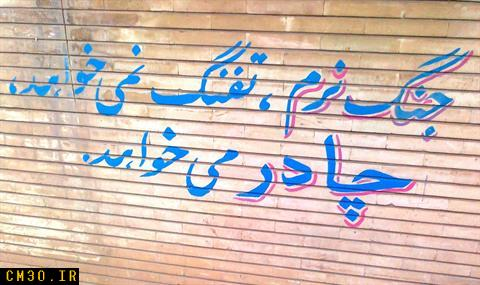 جنگ نرم، تفنگ نمی خواهد،
چادر می خواهد.
CM30.IR